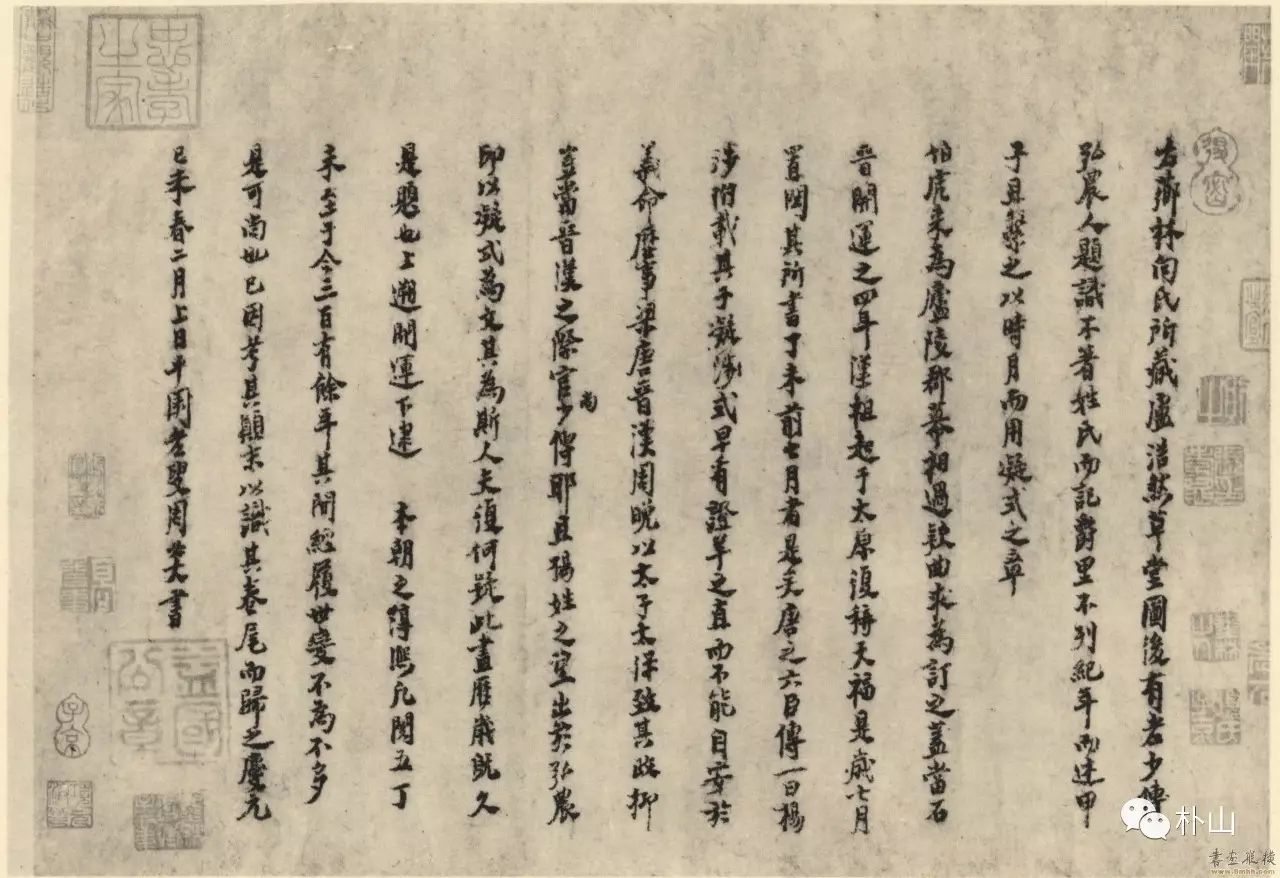 右薌林向氏所藏盧浩然草堂圖後有老少傅
弘農人題識不著姓氏而記爵里不列紀年而述甲
子且繫之以時月而用凝式之章
伯虎來為廬陵郡幕相過款曲求為訂之蓋當石
晉開運之四年漢祖起于太原復稱天福是歲七月
置閏其所書丁未前七月者是矣唐之六臣傳一曰楊
涉附載其子凝涉式早有證羊之直而不能自安於
義命歷事梁唐晉漢周晚以太子太保致其政抑
豈當晉漢之際官尚少傅耶且楊姓之望出於弘農
印以凝式為文其為斯人夫復何疑此畫歷歲既久
是題也上遡開運下逮 本朝之淳熙凡閱五丁
未至于今三百有餘年其間履世變不為不多
是可尚也已因考其顛末以識其卷尾而歸之慶元
己未春二月上日平園老叟周必大書
忠孝之家
益國公章
子京
朴山
www.8mhh.com